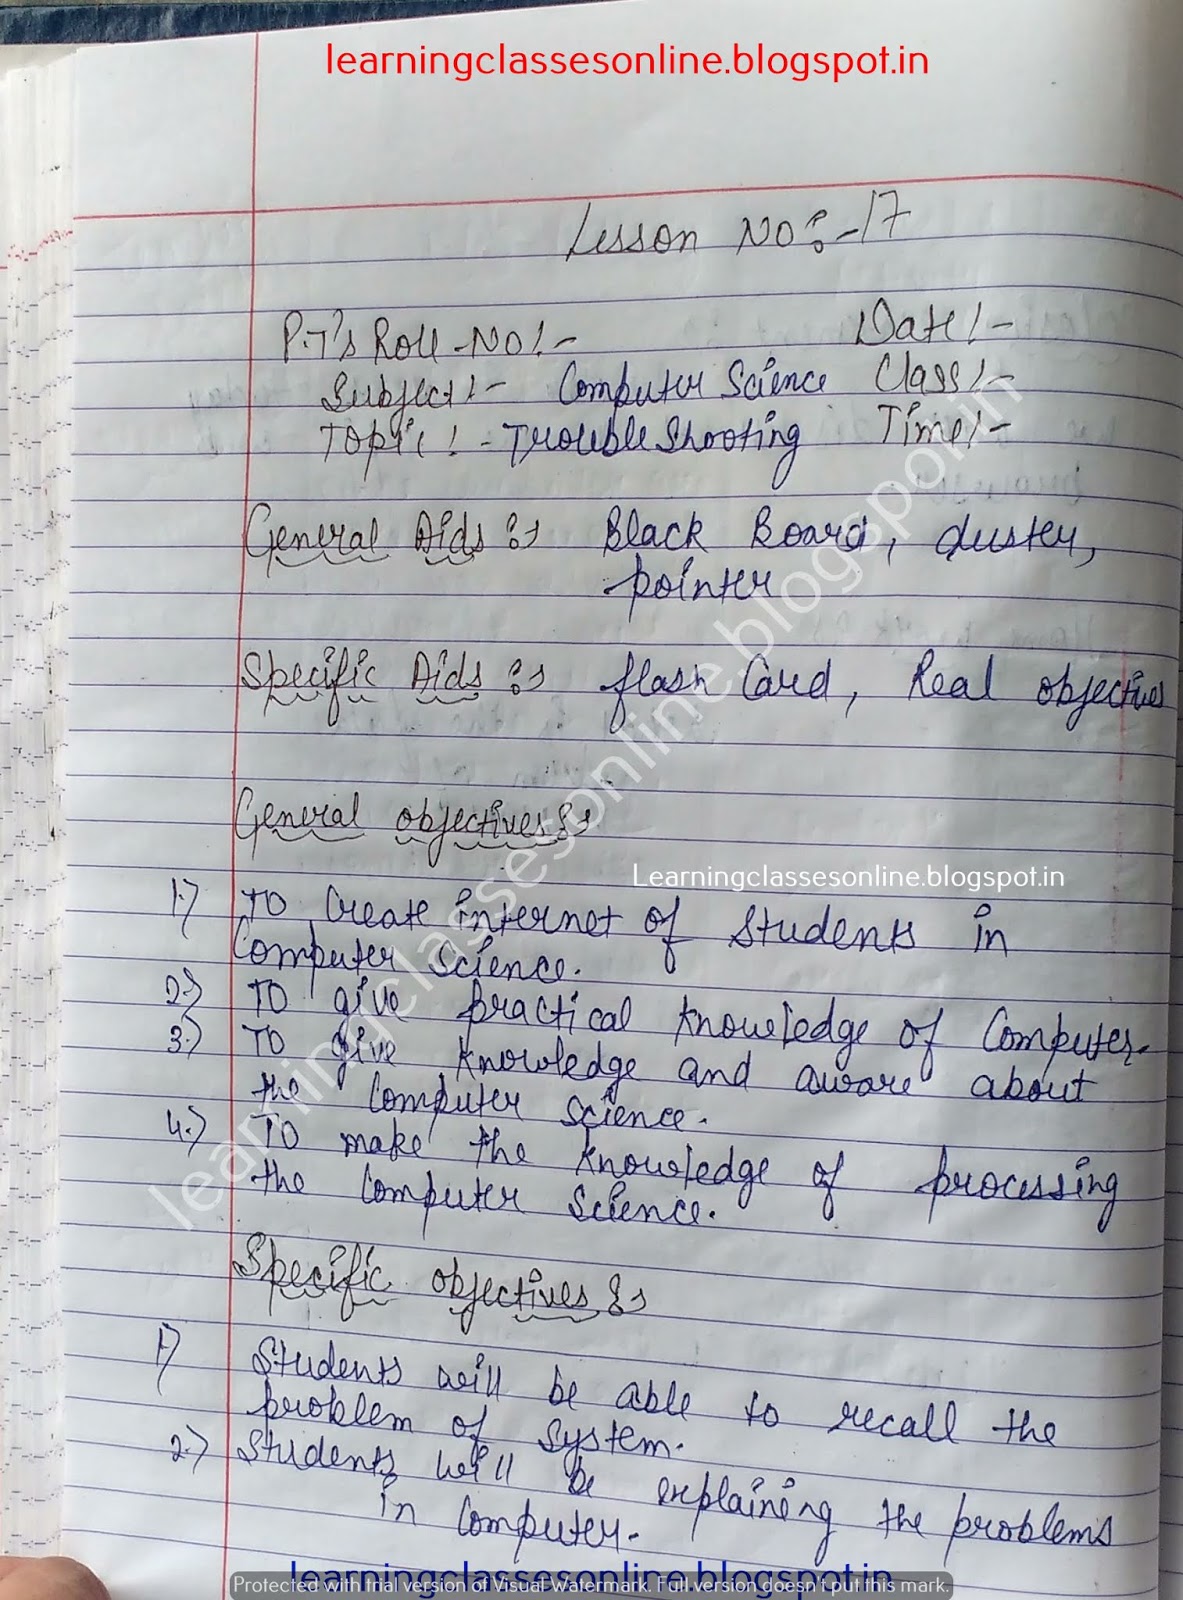 learningclassesonline.blogspot.in
Lesson No:-17
P.T's Roll-No!- Date!-
Subject!- Computer Science Class!-
Topic!- TroubleShooting Time!-
General Aids :- Black Board, duster,
pointer
Specific Aids :- flash Card, Real objectives
General objectives :-
Learningclassesonline.blogspot.in
1.) To Create internet of Students in
Computer Science.
2.) To give practical knowledge of Computer.
3.) To give knowledge and aware about
the Computer Science.
4.) To make the knowledge of processing
the Computer Science.
Specific objectives :-
1) Students will be able to recall the
problem of system.
2.) Students will be explaining the problems
in Computer.
learningclassesonline.blogspot.in
learningclassesonline.blogspot.in
Protected with trial version of Visual Watermark. Full version doesn't put this mark.